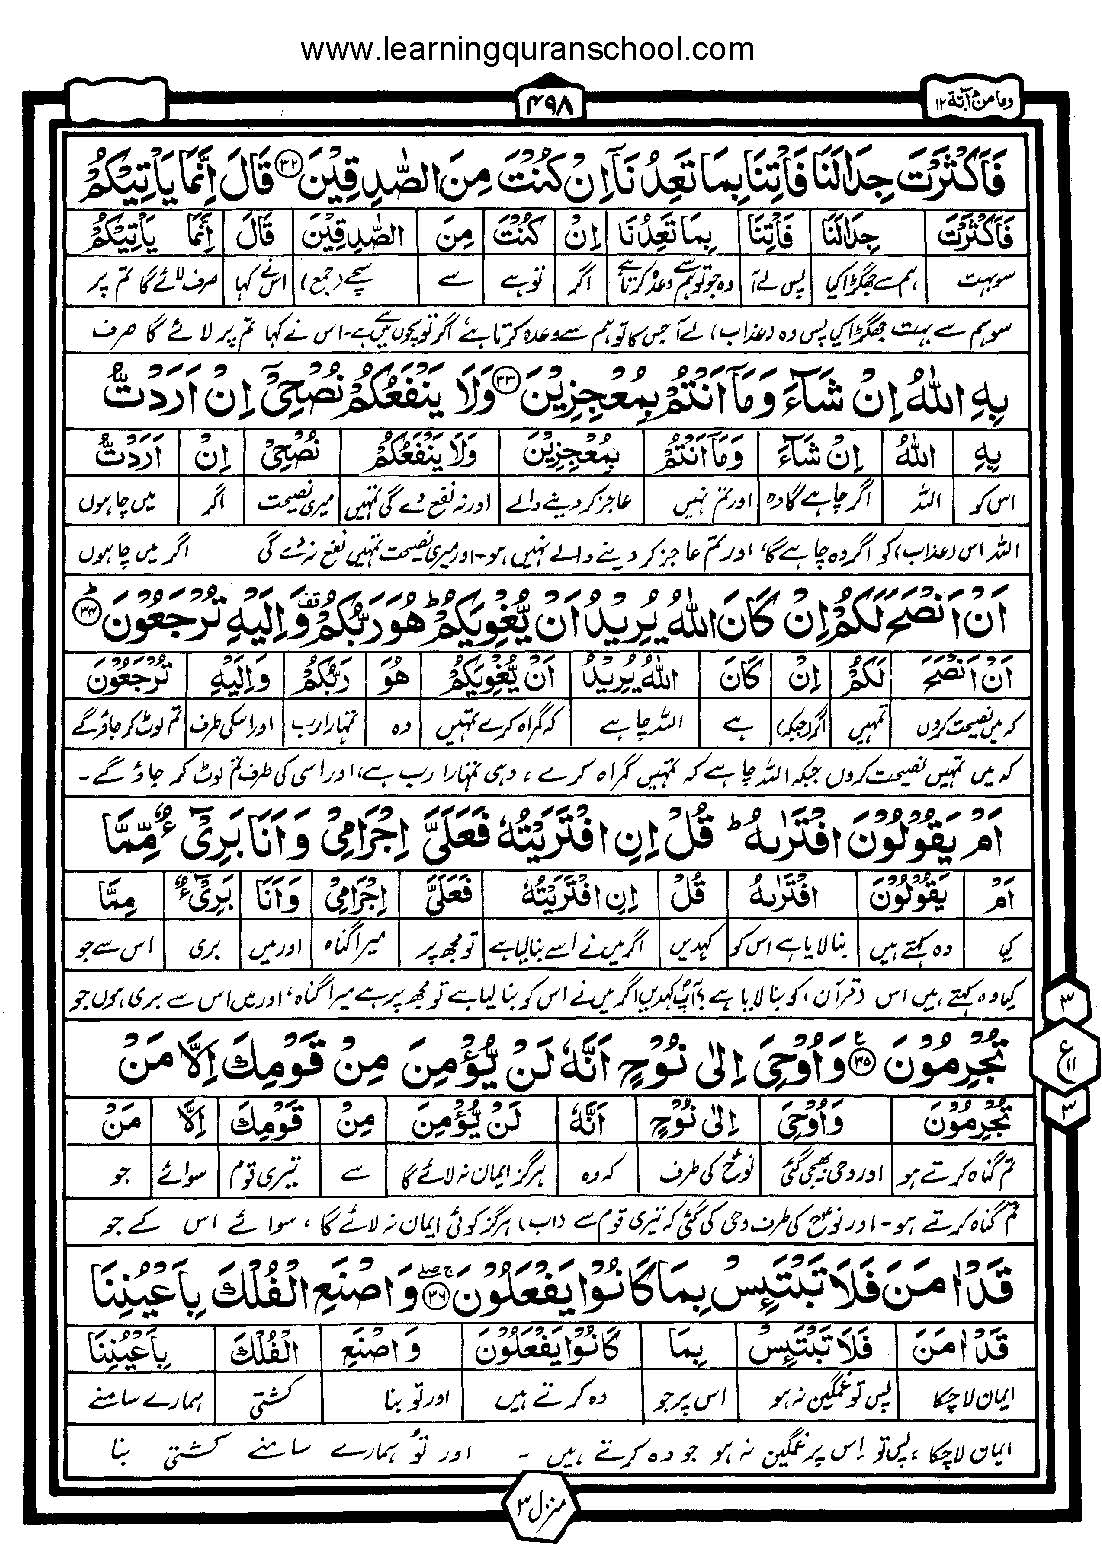 www.learningquranschool.com
وما من دآبة ۱۲
۴۹۸
فَاَكْثَرْتَ جِدَالَنَا فَاْتِنَا بِمَا تَعِدُنَآ اِنْ كُنْتَ مِنَ الصّٰدِقِيْنَ ۳۲ قَالَ اِنَّمَا يَاْتِيْكُمْ
فَاَكْثَرْتَ جِدَالَنَا فَاْتِنَا بِمَا تَعِدُنَا اِنْ كُنْتَ مِنَ الصّٰدِقِيْنَ قَالَ اِنَّمَا يَاْتِيْكُمْ
سو بہت ہم سے جھگڑا کیا پس لے آ وہ جو تو ہم سے وعدہ کرتا ہے اگر تو ہے سے سچے (جمع) اس نے کہا صرف لائے گا تم پر
سو ہم سے بہت جھگڑا کیا پس وہ (عذاب) لے آ جس کا تو ہم سے وعدہ کرتا ہے اگر تو سچوں میں سے ہے۔ اس نے کہا تم پر لائے گا صرف
بِهِ اللّٰهُ اِنْ شَآءَ وَمَآ اَنْتُمْ بِمُعْجِزِيْنَ ۳۳ وَلَا يَنْفَعُكُمْ نُصْحِىْٓ اِنْ اَرَدْتُّ
بِهِ اللّٰهُ اِنْ شَآءَ وَمَآ اَنْتُمْ بِمُعْجِزِيْنَ وَلَا يَنْفَعُكُمْ نُصْحِىْٓ اِنْ اَرَدْتُّ
اس کو اللہ اگر چاہے گا وہ اور تم نہیں عاجز کر دینے والے اور نہ نفع دے گی تمہیں میری نصیحت اگر میں چاہوں
اللہ اس (عذاب) کو اگر وہ چاہے گا، اور تم عاجز کر دینے والے نہیں ہو۔ اور میری نصیحت تمہیں نفع نہ دے گی اگر میں چاہوں
اَنْ اَنْصَحَ لَكُمْ اِنْ كَانَ اللّٰهُ يُرِيْدُ اَنْ يُّغْوِيَكُمْ ط هُوَ رَبُّكُمْ قف وَاِلَيْهِ تُرْجَعُوْنَ ط ۳۴
اَنْ اَنْصَحَ لَكُمْ اِنْ كَانَ اللّٰهُ يُرِيْدُ اَنْ يُّغْوِيَكُمْ هُوَ رَبُّكُمْ وَاِلَيْهِ تُرْجَعُوْنَ
کہ میں نصیحت کروں تمہیں اگر (جبکہ) ہے اللہ چاہے کہ گمراہ کرے تمہیں وہ تمہارا رب اور اسکی طرف تم لوٹ کر جاؤ گے
کہ میں تمہیں نصیحت کروں جبکہ اللہ چاہے کہ تمہیں گمراہ کرے، وہی تمہارا رب ہے، اور اسی کی طرف تم لوٹ کر جاؤ گے۔
اَمْ يَقُوْلُوْنَ افْتَرٰىهُ ط قُلْ اِنِ افْتَرَيْتُهٗ فَعَلَىَّ اِجْرَامِىْ وَاَنَا بَرِىْٓءٌ مِّمَّا
اَمْ يَقُوْلُوْنَ افْتَرٰىهُ قُلْ اِنِ افْتَرَيْتُهٗ فَعَلَىَّ اِجْرَامِىْ وَاَنَا بَرِىْٓءٌ مِمَّا
کیا وہ کہتے ہیں بنا لایا ہے اس کو کہدیں اگر میں نے اسے بنا لیا ہے تو مجھ پر میرا گناہ اور میں بری اس سے جو
کیا وہ کہتے ہیں اس (قرآن) کو بنا لایا ہے؟ آپ کہدیں اگر میں نے اس کو بنا لیا ہے تو مجھ پر ہے میرا گناہ، اور میں اس سے بری ہوں جو
تُجْرِمُوْنَ ع ۳۵ وَاُوْحِىَ اِلٰى نُوْحٍ اَنَّهٗ لَنْ يُّؤْمِنَ مِنْ قَوْمِكَ اِلَّا مَنْ
۳
ع ۱۱
۳
تُجْرِمُوْنَ وَاُوْحِىَ اِلٰى نُوْحٍ اَنَّهٗ لَنْ يُّؤْمِنَ مِنْ قَوْمِكَ اِلَّا مَنْ
تم گناہ کرتے ہو اور وحی بھیجی گئی نوح کی طرف کہ وہ ہرگز ایمان نہ لائے گا سے تیری قوم سوائے جو
تم گناہ کرتے ہو۔ اور نوح کی طرف وحی کی گئی کہ تیری قوم سے (اب) ہرگز کوئی ایمان نہ لائے گا، سوائے اس کے جو
قَدْ اٰمَنَ فَلَا تَبْتَئِسْ بِمَا كَانُوْا يَفْعَلُوْنَ ۳۶ وَاصْنَعِ الْفُلْكَ بِاَعْيُنِنَا
قَدْ اٰمَنَ فَلَا تَبْتَئِسْ بِمَا كَانُوْا يَفْعَلُوْنَ وَاصْنَعِ الْفُلْكَ بِاَعْيُنِنَا
ایمان لا چکا پس تو غمگین نہ ہو اس پر جو وہ کرتے ہیں اور تو بنا کشتی ہمارے سامنے
ایمان لا چکا، پس تو اس پر غمگین نہ ہو جو وہ کرتے ہیں۔ اور تو ہمارے سامنے کشتی بنا
منزل ۳